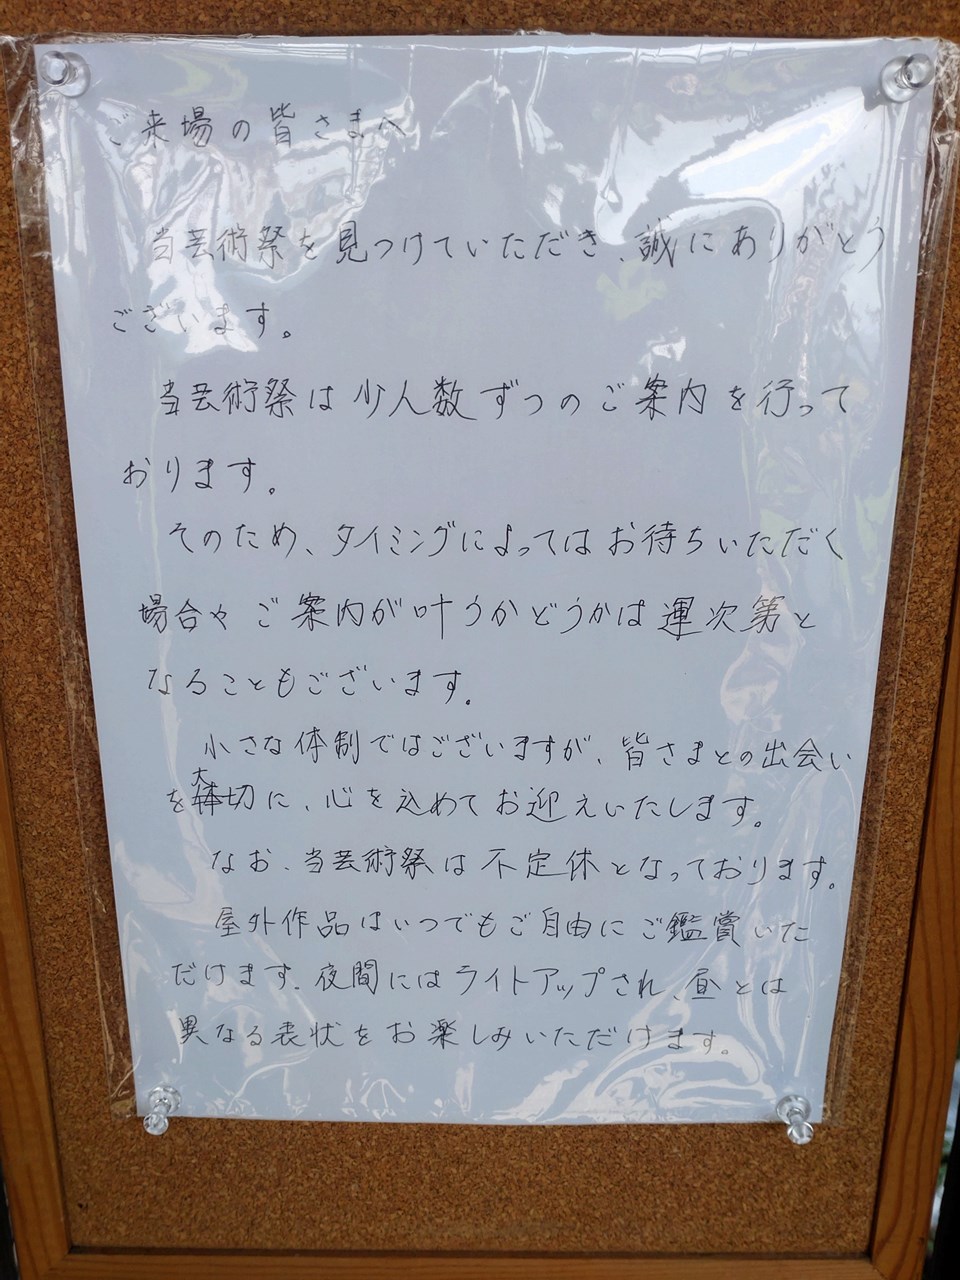 ご来場の皆さまへ
当芸術祭を見つけていただき、誠にありがとう
ございます。
当芸術祭は少人数ずつのご案内を行って
おります。
そのため、タイミングによってはお待ちいただく
場合やご案内が叶うかどうかは運次第と
なることもございます。
小さな体制ではございますが、皆さまとの出会い
を大切に、心を込めてお迎えいたします。
なお、当芸術祭は不定休となっております。
屋外作品はいつでもご自由にご鑑賞いた
だけます。夜間にはライトアップされ、昼とは
異なる表状をお楽しみいただけます。